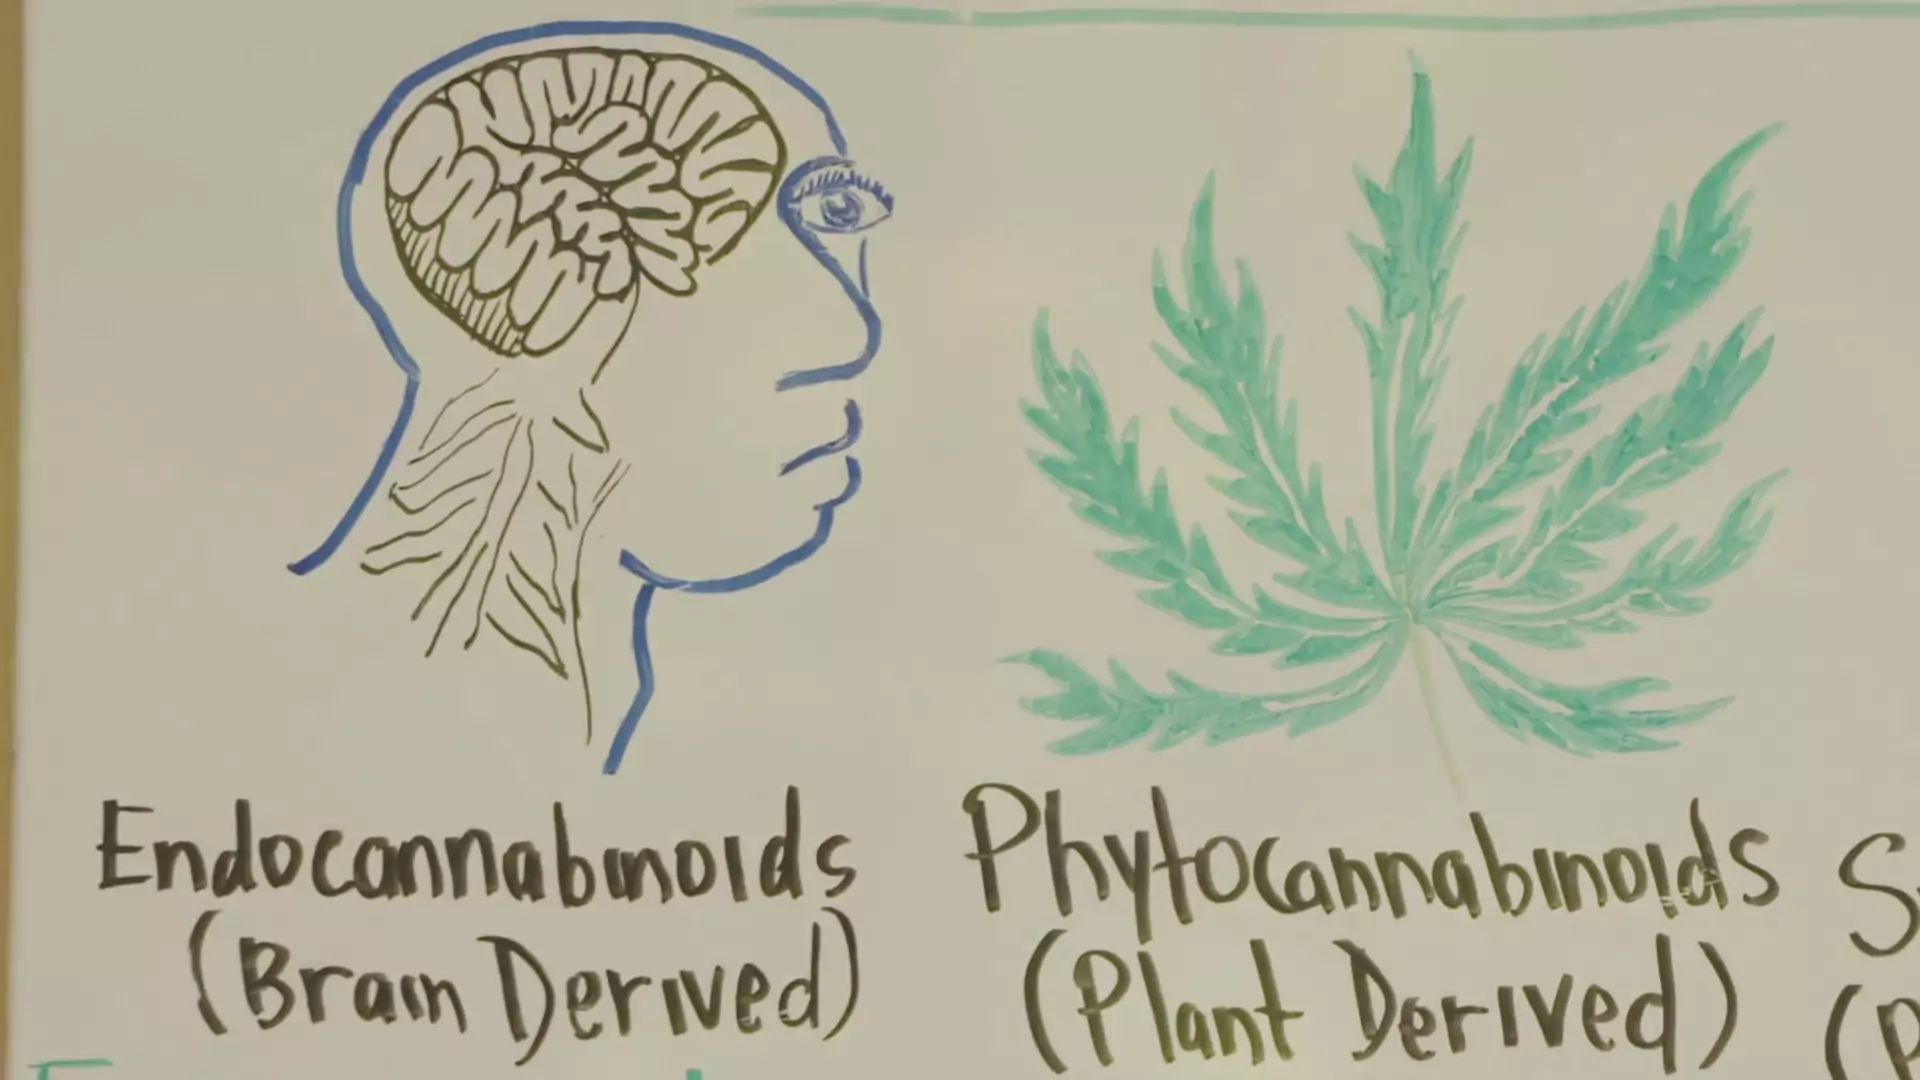 Endocannabinoids
(Brain Derived)
Phytocannabinoids
(Plant Derived)